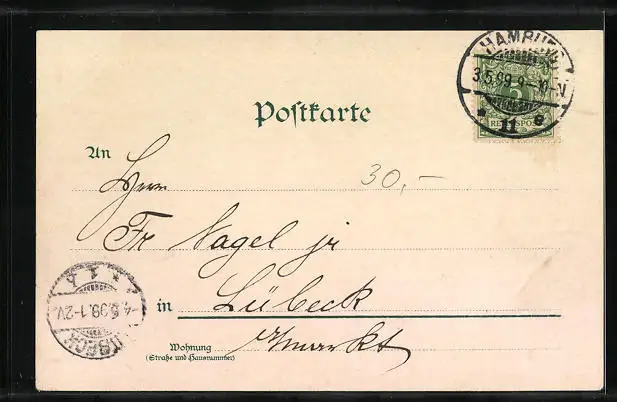 HAMBURG
3.5.99.9-10V.
* 11 e
5
REICHSPOST
Postkarte
An
Herrn
30,-
Fr Nagel jr
in Lübeck
markt
Wohnung
(Straße und Hausnummer)
LÜBECK
4.5.99.1-2V.
* 1 b